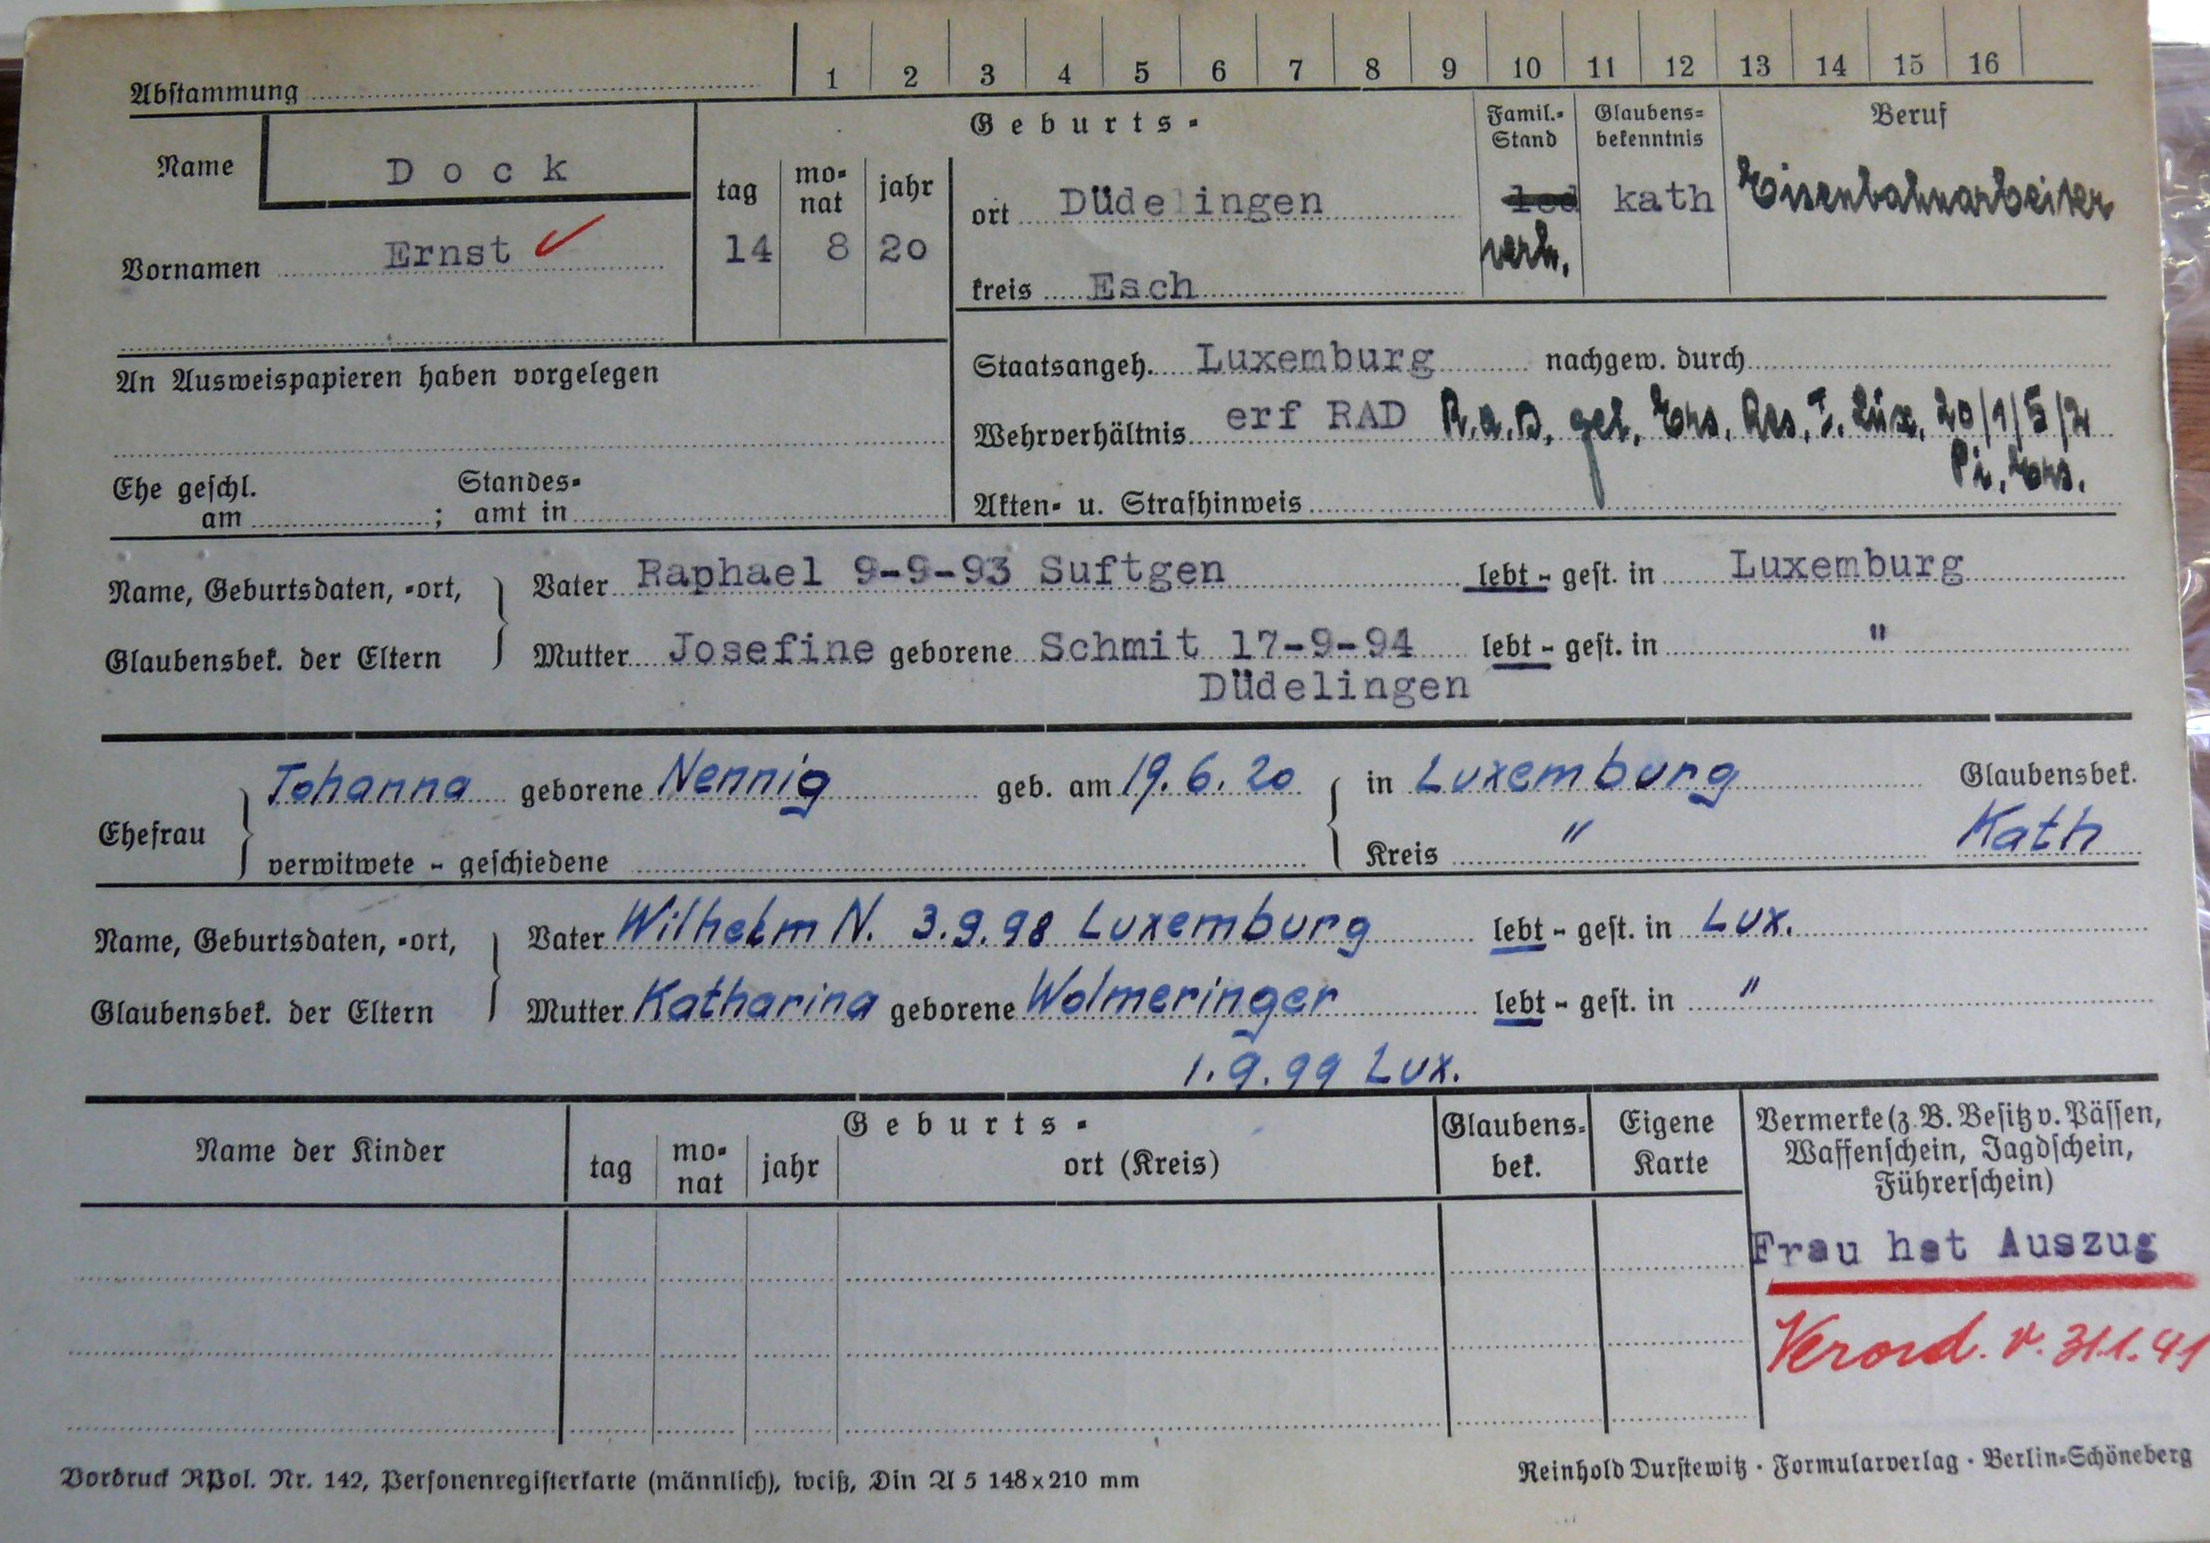 Abstammung 1 2 3 4 5 6 7 8 9 10 11 12 13 14 15 16
Name Dock
Vornamen Ernst
Geburts-
tag monat jahr
14 8 20
ort Düdelingen
kreis Esch
Famil.-Stand
led
verh.
Glaubens-bekenntnis
kath
Beruf
Eisenbahnarbeiter
An Ausweispapieren haben vorgelegen
Staatsangeh. Luxemburg nachgew. durch
Wehrverhältnis erf RAD R.A.D. gel. Ers. Res. I. Lux. 20/1/5/2
Pi. Ers.
Ehe geschl. am ; Standes-amt in
Akten- u. Strafhinweis
Name, Geburtsdaten, -ort,
Glaubensbek. der Eltern
Vater Raphael 9-9-93 Suftgen lebt - gest. in Luxemburg
Mutter Josefine geborene Schmit 17-9-94 lebt - gest. in "
Düdelingen
Ehefrau
Johanna geborene Nennig geb. am 19.6.20 in Luxemburg Glaubensbek.
verwitwete - geschiedene Kreis " Kath
Name, Geburtsdaten, -ort,
Glaubensbek. der Eltern
Vater Wilhelm N. 3.9.98 Luxemburg lebt - gest. in Lux.
Mutter Katharina geborene Wolmeringer lebt - gest. in "
1.9.99 Lux.
Name der Kinder
Geburts-
tag monat jahr ort (Kreis)
Glaubens-bek.
Eigene Karte
Vermerke (z. B. Besitz v. Pässen,
Waffenschein, Jagdschein,
Führerschein)
Frau hat Auszug
Verord. v. 31.1.41
Vordruck RPol. Nr. 142, Personenregisterkarte (männlich), weiß, Din A 5 148x210 mm
Reinhold Durstewitz · Formularverlag · Berlin-Schöneberg